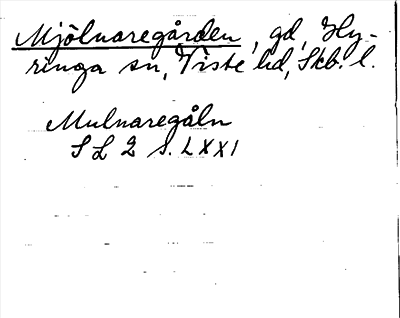 Mjölnaregården, gd, Hy-
ringa sn, Viste hd, Skb. l.
Mulnaregåln
SL 2 s. LXXI